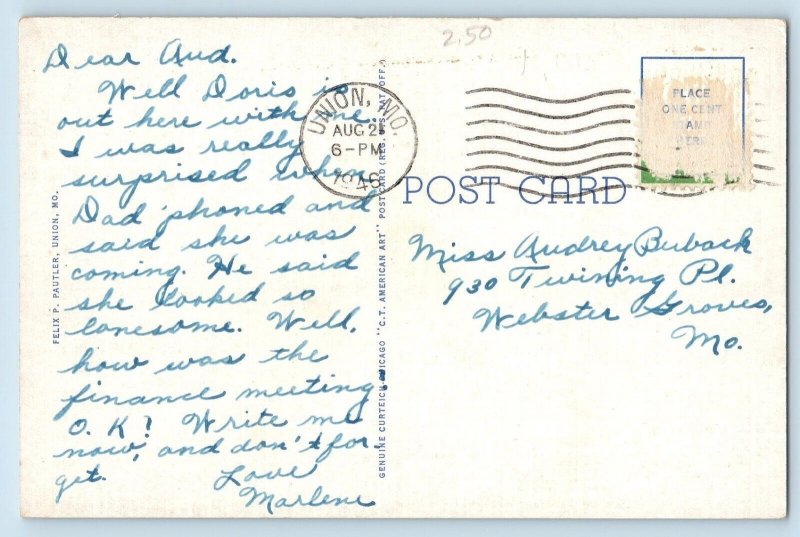 2.50
Dear Aud.
Well Doris is
out here with me.
I was really
surprised when
Dad 'phoned and
said she was
coming. He said
she looked so
lonesome. Well,
how was the
finance meeting
O.K? Write me
now, and don't for-
get.
Love
Marlene
FELIX P. PAUTLER, UNION, MO.
GENUINE CURTEICH-CHICAGO "C.T. AMERICAN ART" POST CARD (REG. U.S. PAT. OFF.)
UNION, MO.
AUG 25
6-PM
1946
PLACE
ONE CENT
STAMP
HERE
POST CARD
Miss Audrey Buback
930 Twining Pl.
Webster Groves,
Mo.